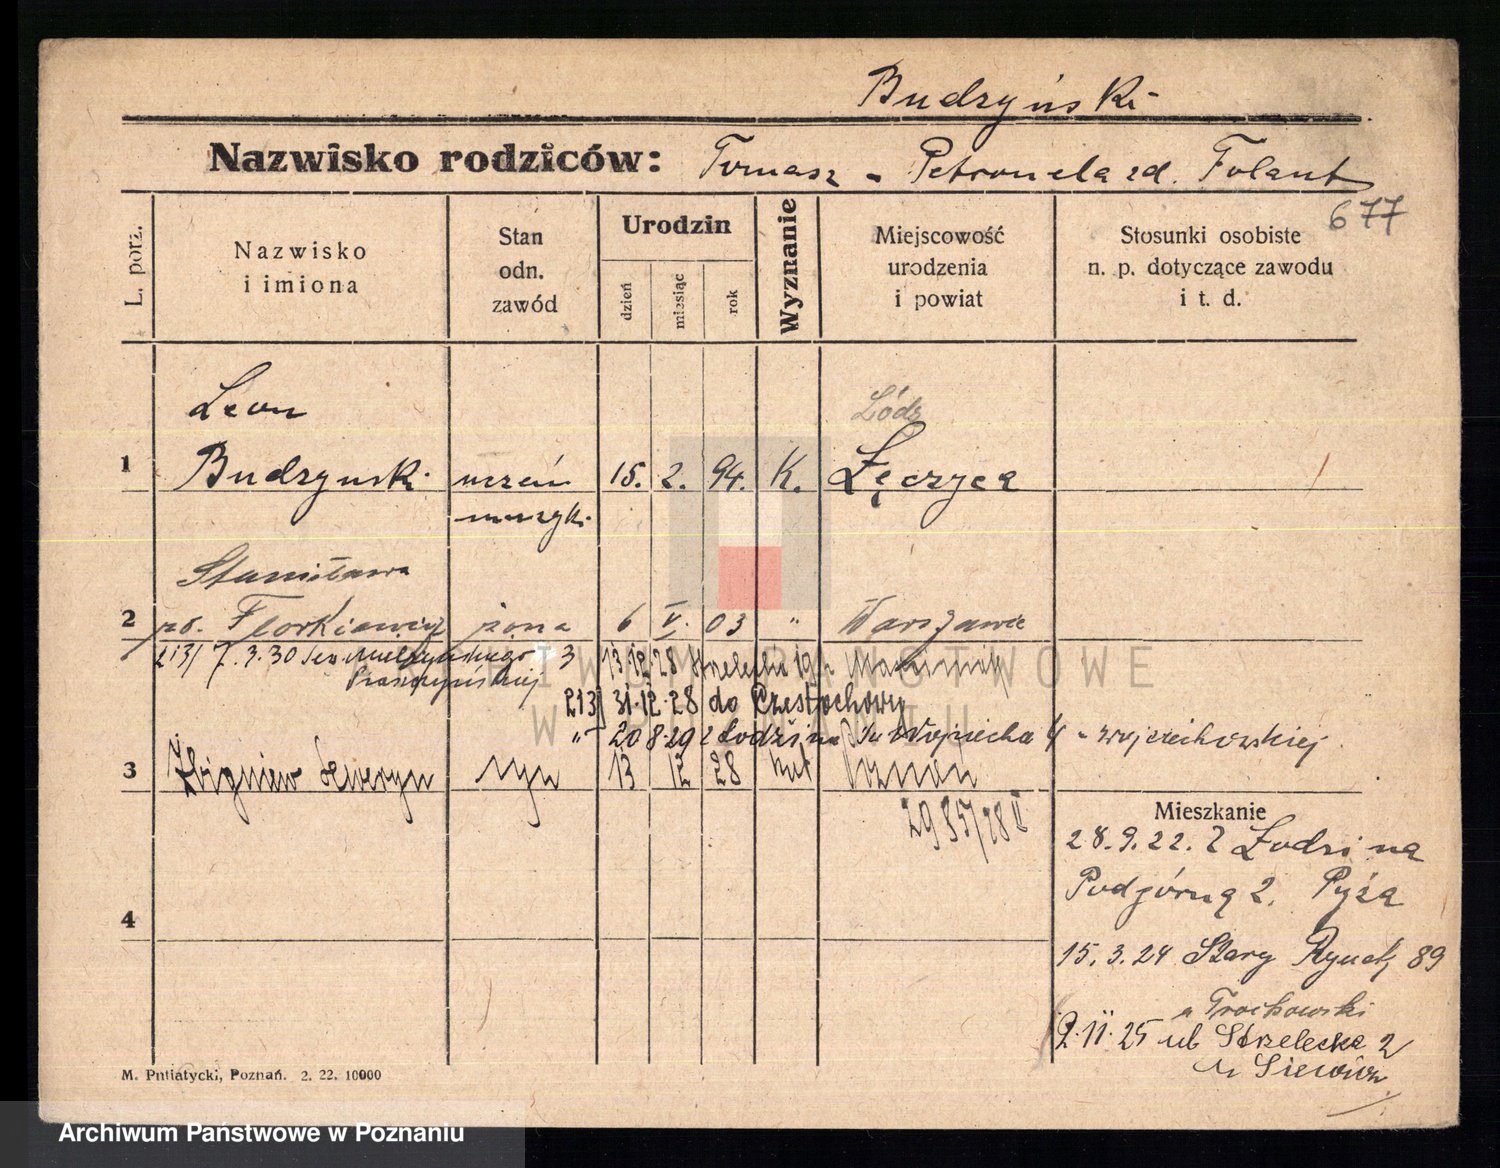 Budzyński
Nazwisko rodziców: Tomasz - Petronela zd. Folant
677
L. porz.
Nazwisko i imiona
Stan odn. zawód
Urodzin
dzień
miesiąc
rok
Wyznanie
Miejscowość urodzenia i powiat
Stosunki osobiste n. p. dotyczące zawodu i t. d.
Leon
Łódz
1 Budzynski uczeń 15. 2. 94. K. Łęczyca
muzyki
Stanisława
2 zd. Florkiewicz żona 6 V. 03 " Warszawie
213/ 7.3.30 Sew. Mielżyńskiego 3 13 12 28 Strzelecka 19
213/ 31·12·28 do Częstochowy
-"- 20 8 29 z Łodzi na Św Wojciecha 4 - Wojciechowskiej
3 Zbigniew Seweryn syn 13 12 28 kat Poznań
2985/28 II
Mieszkanie
28.9.22. z Łodzi na
Podgórną 2. Pyża
4
15.3.24 Stary Rynek 89
u Trochowski
2·11·25 ul Strzelecka 2
M. Putiatycki, Poznań. 2. 22. 10000
ARCHIWUM PAŃSTWOWE
W POZNANIU
Archiwum Państwowe w Poznaniu